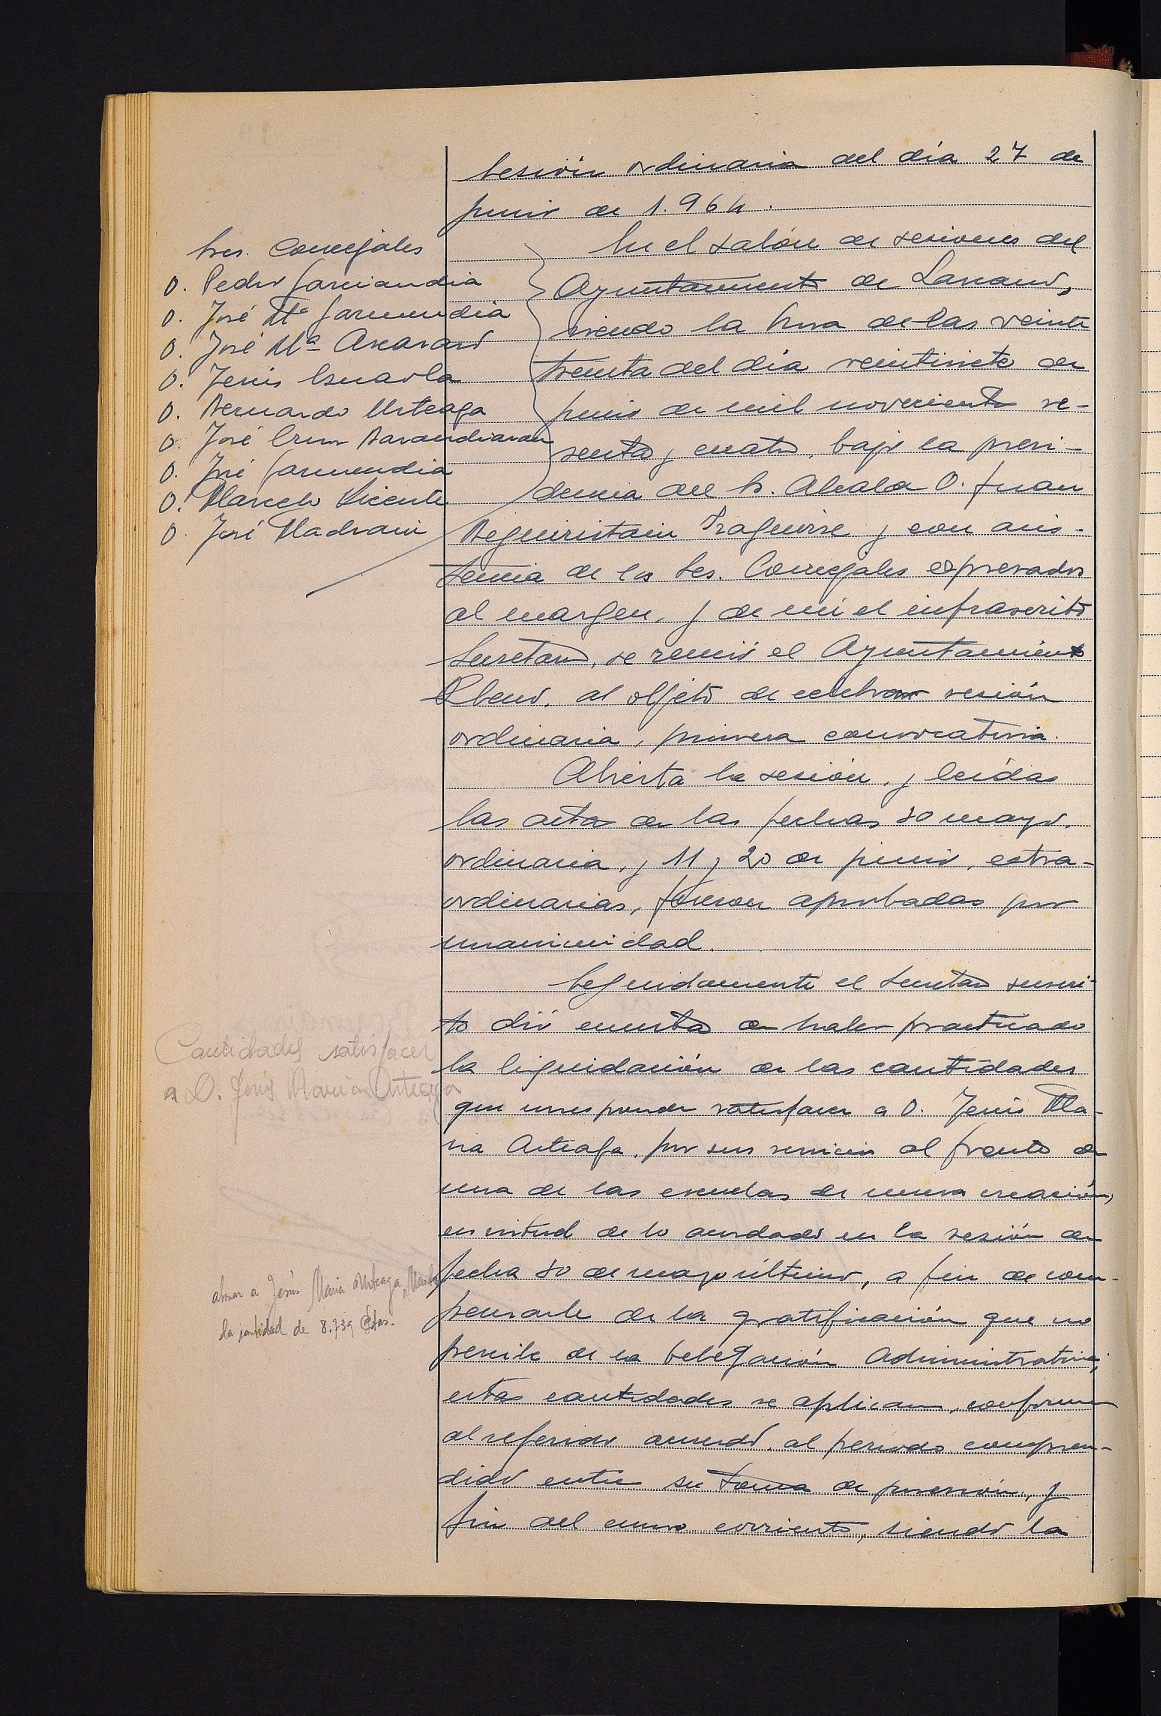 Sesión ordinaria del día 27 de
junio de 1.964.
Sres. Concejales
D. Pedro Garciandia
D. José Mª Garmendia
D. José Mª
D. Jesús
D. Bernardo Urteaga
D. José Cruz Barandiaran
D. José Garmendia
D. Marcelo Vicente
D. José Madrazo
En el salón de sesiones del
Ayuntamiento de Lazcano,
siendo la hora de las veinte
treinta del día veintisiete de
junio de mil novecientos se-
senta y cuatro, bajo la presi-
dencia del Sr. Alcalde D. Juan
Beguiristain Izaguirre y con asis-
tencia de los Sres. Concejales expresados
al margen, y de mi el infrascrito
Secretario, se reunió el Ayuntamiento
Pleno, al objeto de celebrar sesión
ordinaria, primera convocatoria.
Abierta la sesión, y leídas
las actas de las fechas 30 mayo,
ordinaria, y 11 y 20 de junio, extra-
ordinarias, fueron aprobadas por
unanimidad.
Seguidamente el Secretario suscri-
to dió cuenta de haber practicado
la liquidación de las cantidades
que corresponde satisfacer a D. Jesús Ma-
ria Arteaga, por sus servicios al frente de
una de las escuelas de nueva creación,
en virtud de lo acordado en la sesión de
fecha 30 de mayo último, a fin de com-
pensarle de la gratificación que no
percibe de la Delegación Administrativa;
estas cantidades se aplican, conforme
al referido acuerdo, al periodo compren-
dido entre su toma de posesión, y
fin del curso corriente, siendo la
Cantidades satisfacer
a D. Jesús Maria Arteaga
abonar a Jesús Maria Arteaga,
la cantidad de 8.739 Ptas.